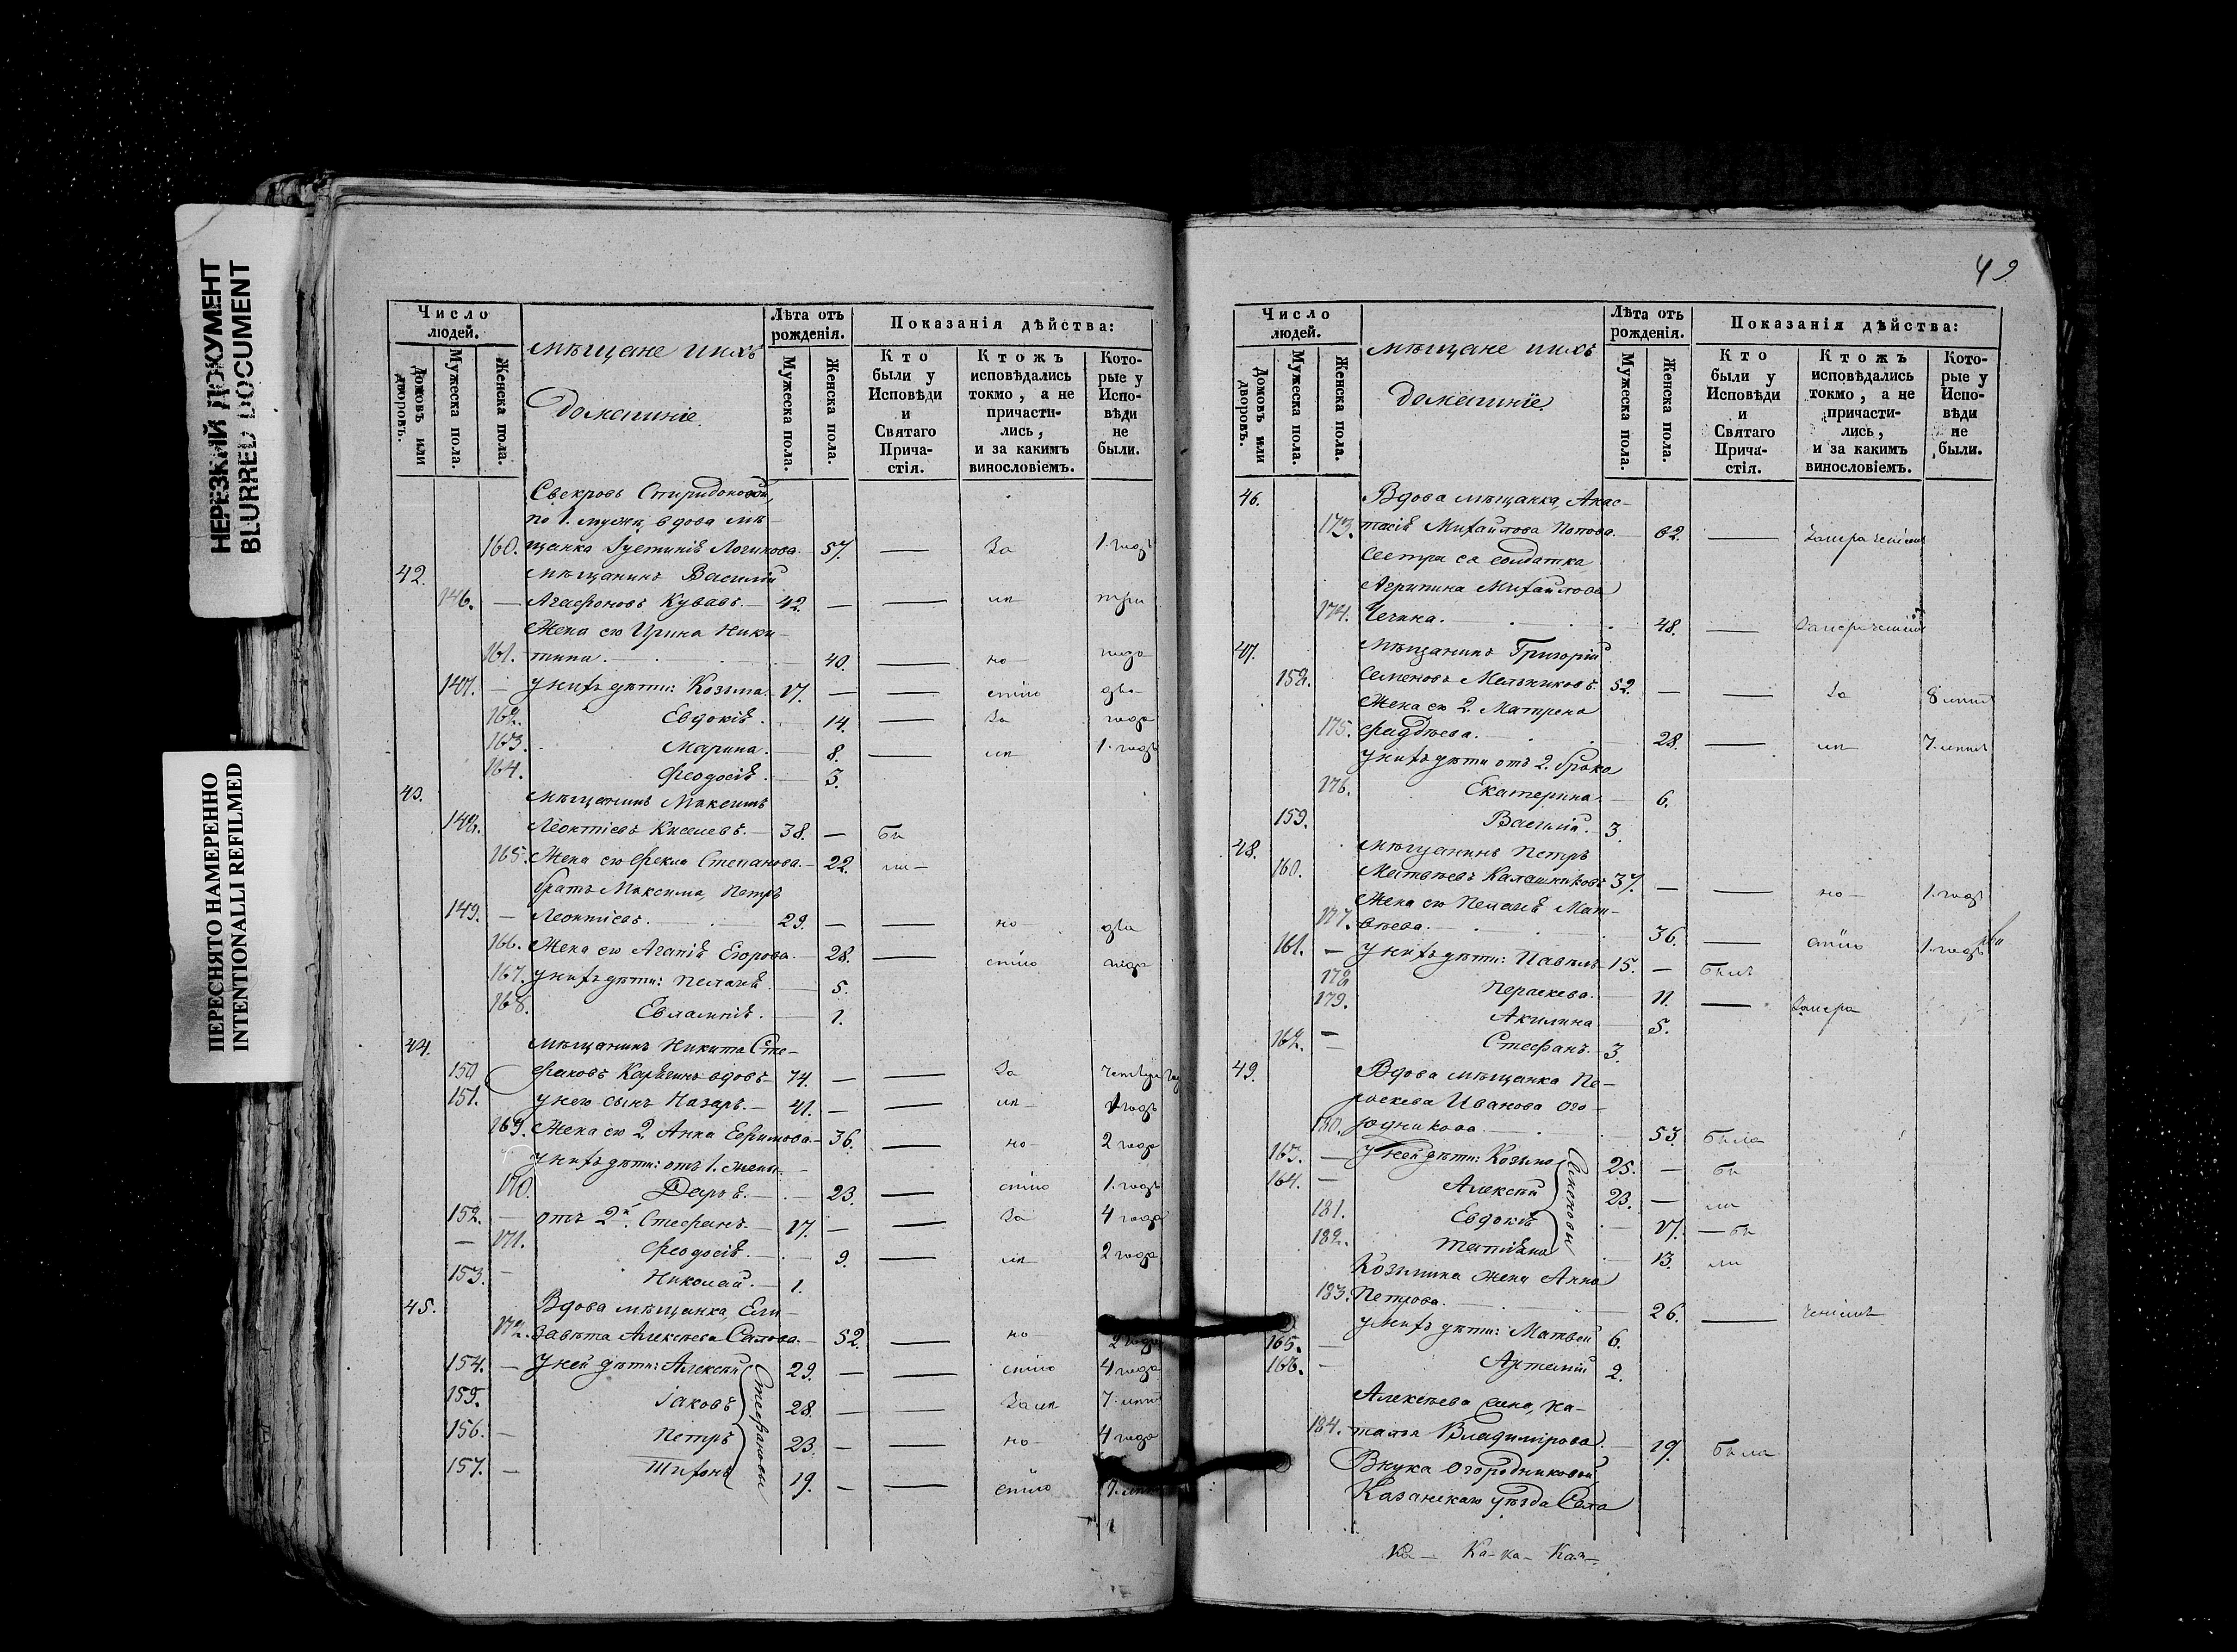 НЕРЕЗКИЙ ДОКУМЕНТ
BLURRED DOCUMENT
ПЕРЕСНЯТО НАМЕРЕННО
INTENTIONALLI REFILMED
Число людей.
Домовъ или дворовъ.
Мужеска пола.
Женска пола.
Мѣщане и ихъ
домашніе.
Лѣта отъ рожденія.
Мужеска пола.
Женска пола.
Показанія дѣйства:
Кто были у Исповѣди и Святаго Прича-стія.
Ктожъ исповѣдались токмо, а не причасти-лись, и за какимъ винословіемъ.
Кото-рые у Испо-вѣди не были.
Свекровь Спиридоновой,
по 1. мужѣ, вдова мѣ-
160. щанка Іустинія Логинова. 57. — За 1. годъ
42. Мѣщанинъ Василій
146. — Агафоновъ 42. — — ли три
Жена его Ирина Ники-
161. тина. 40. — но года
147. — У нихъ дѣти: Козьма. 17. — — стію два
162. Евдокія. 14. — За года
163. Марина. 8. — ли 1. годъ
164. Феодосія. 3.
43. Мѣщанинъ Максимъ
148. Леонтіевъ Киселевъ. 38. — Бы
165. Жена его Фекла Степанова. 22. ли
братъ Максима, Петръ
149. — Леонтіевъ. 29. — — но два
166. Жена его Агапія Егорова. 28. — стію года
167. У нихъ дѣти: Пелагея. 5.
168. Евлампія. 1.
44. Мѣщанинъ Никита Сте-
150 фановъ вдовъ 74. — — За
151. У него сынъ Назаръ. 41. — — ли 1 годъ
169. Жена его 2. Анна Ефимова 36. — но 2 года
У нихъ дѣти: отъ 1. жены
170. Дарья. 23. — стію 1. годъ
152. — отъ 2й. Стефанъ. 17. — — За 4 года
— 171. Феодосія. 9. — ли 2 года
153. — Николай. 1.
45. Вдова мѣщанка, Ели-
172. завета Алексѣева 52. — но 2 года
154. — У ней дѣти: Алексѣй 29. — — стію 4 года
155. Іаковъ 28. — — За ли 7. лѣтъ
156. — Петръ 23. — — но 4 года
157. — Тихонъ 19. — — стію
Стефановы
49
Число людей.
Домовъ или дворовъ.
Мужеска пола.
Женска пола.
Мѣщане и ихъ
домашніе.
Лѣта отъ рожденія.
Мужеска пола.
Женска пола.
Показанія дѣйства:
Кто были у Исповѣди и Святаго Прича-стія.
Ктожъ исповѣдались токмо, а не причасти-лись, и за какимъ винословіемъ.
Кото-рые у Испо-вѣди не были.
46. Вдова мѣщанка, Анас-
173. тасія Михайлова Попова. 62. —
Сестра ея солдатка
Агрипина Михайлова
174. 48. —
47. Мѣщанинъ Григорій
158. Семеновъ Мельниковъ. 52. — — За 8 лѣтъ
Жена его 2. Матрена
175. Фаддѣева. 28. — ли 7. лѣтъ
У нихъ дѣти отъ 2. брака
176. Екатерина. 6.
159. Василій. 3
48. Мѣщанинъ Петръ
160. Матвѣевъ Калашниковъ 37. — — но 1. годъ
Жена его Пелагея Мат-
177. вѣева. 36. — стію 1. годъ
161. — У нихъ дѣти: Павелъ 15. — Былъ
178. Параскева. 11. —
179. Акилина 5.
162. — Стефанъ. 3.
49. Вдова мѣщанка Па-
раскева Иванова Ого-
180. родникова 53. Была
163. — У ней дѣти: Козьма 25. — Бы
164. — Алексѣй 23. — ли
181. Евдокія 17. — Бы
182. Татіяна 13. ли
Семеновы
Козьмина жена Анна
183. Петрова. 26. —
165. — У нихъ дѣти: Матвей 6.
166. — Артемій 2.
Алексѣева жена, На-
184. талья Владимірова. 19. Была
Внука Огородниковой
Казанскаго уѣзда Села
Ка — Ка-ка — Каз —